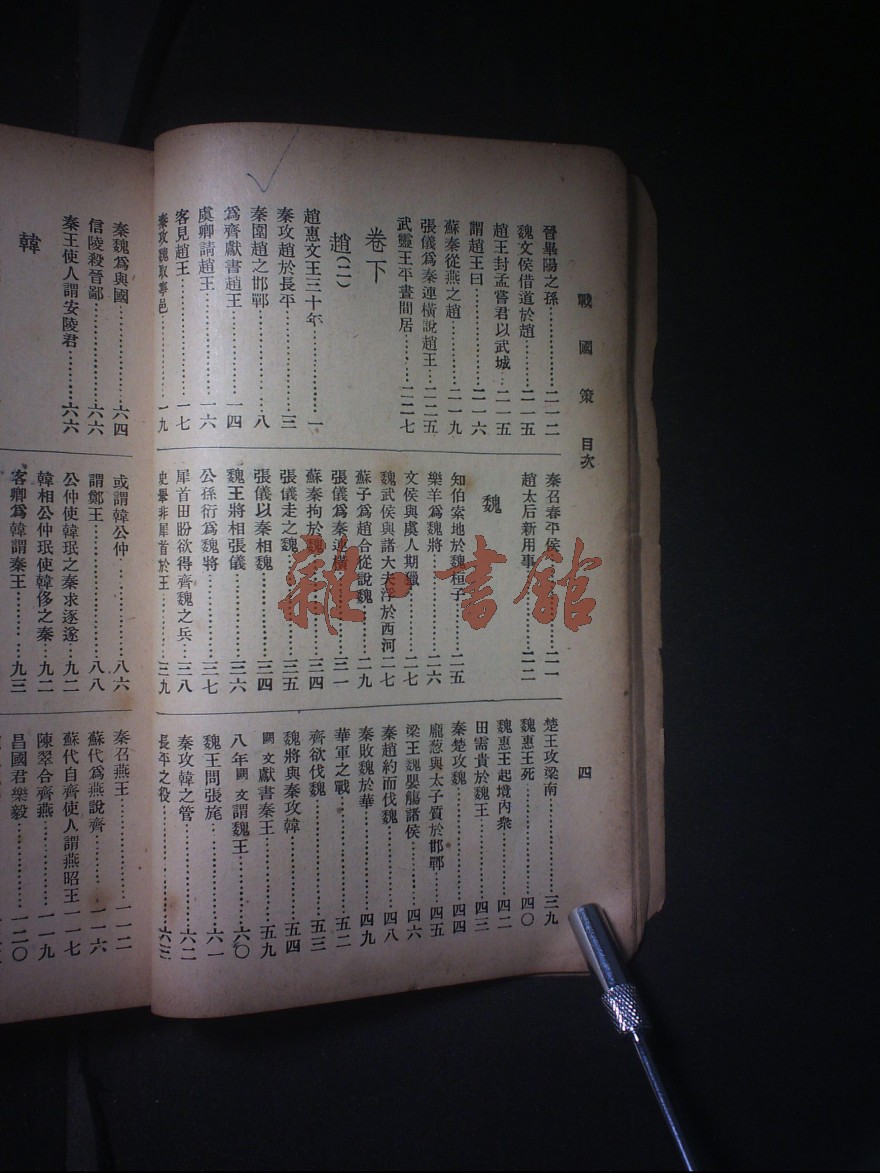 戰國策 目次 四
晉畢陽之孫⋯⋯二一二
魏文侯借道於趙⋯⋯二一五
趙王封孟嘗君以武城⋯⋯二一五
謂趙王曰⋯⋯二一六
蘇秦從燕之趙⋯⋯二一九
張儀爲秦連橫說趙王⋯⋯二二五
武靈王平晝間居⋯⋯二二七
卷下
趙(二)
趙惠文王三十年⋯⋯一
秦攻趙於長平⋯⋯三
秦圍趙之邯鄲⋯⋯八
爲齊獻書趙王⋯⋯一四
虞卿請趙王⋯⋯一六
客見趙王⋯⋯一七
秦攻魏取寧邑⋯⋯一九
秦召春平侯⋯⋯二一
趙太后新用事⋯⋯二二
魏
知伯索地於魏桓子⋯⋯二五
樂羊爲魏將⋯⋯二六
文侯與虞人期獵⋯⋯二七
魏武侯與諸大夫浮於西河 二七
蘇子爲趙合從說魏⋯⋯二九
張儀爲秦連橫⋯⋯三一
蘇秦拘於魏⋯⋯三四
張儀走之魏⋯⋯三五
張儀以秦相魏⋯⋯三四
魏王將相張儀⋯⋯三六
公孫衍爲魏將⋯⋯三七
犀首田盼欲得齊魏之兵⋯⋯三八
史舉非犀首於王⋯⋯三九
楚王攻梁南⋯⋯三九
魏惠王死⋯⋯四〇
魏惠王起境內衆⋯⋯四二
田需貴於魏王⋯⋯四三
秦楚攻魏⋯⋯四四
龐葱與太子質於邯鄲⋯⋯四五
梁王魏嬰觴諸侯⋯⋯四六
秦趙約而伐魏⋯⋯四八
秦敗魏於華⋯⋯四九
華軍之戰⋯⋯五二
齊欲伐魏⋯⋯五三
魏將與秦攻韓⋯⋯五四
闕文獻書秦王⋯⋯五九
八年闕文謂魏王⋯⋯六〇
魏王問張旄⋯⋯六一
秦攻韓之管⋯⋯六二
長平之役⋯⋯六三
秦魏爲與國⋯⋯六四
信陵殺晉鄙⋯⋯六六
秦王使人謂安陵君⋯⋯六六
韓
或謂韓公仲⋯⋯八六
謂鄭王⋯⋯八八
公仲使韓珉之秦求逐遂⋯⋯九二
韓相公仲珉使韓侈之秦⋯⋯九二
客卿爲韓謂秦王⋯⋯九三
秦召燕王⋯⋯一一二
蘇代爲燕說齊⋯⋯一一六
蘇代自齊使人謂燕昭王 一一七
陳翠合齊燕⋯⋯一一九
昌國君樂毅⋯⋯一二〇
雜·書館